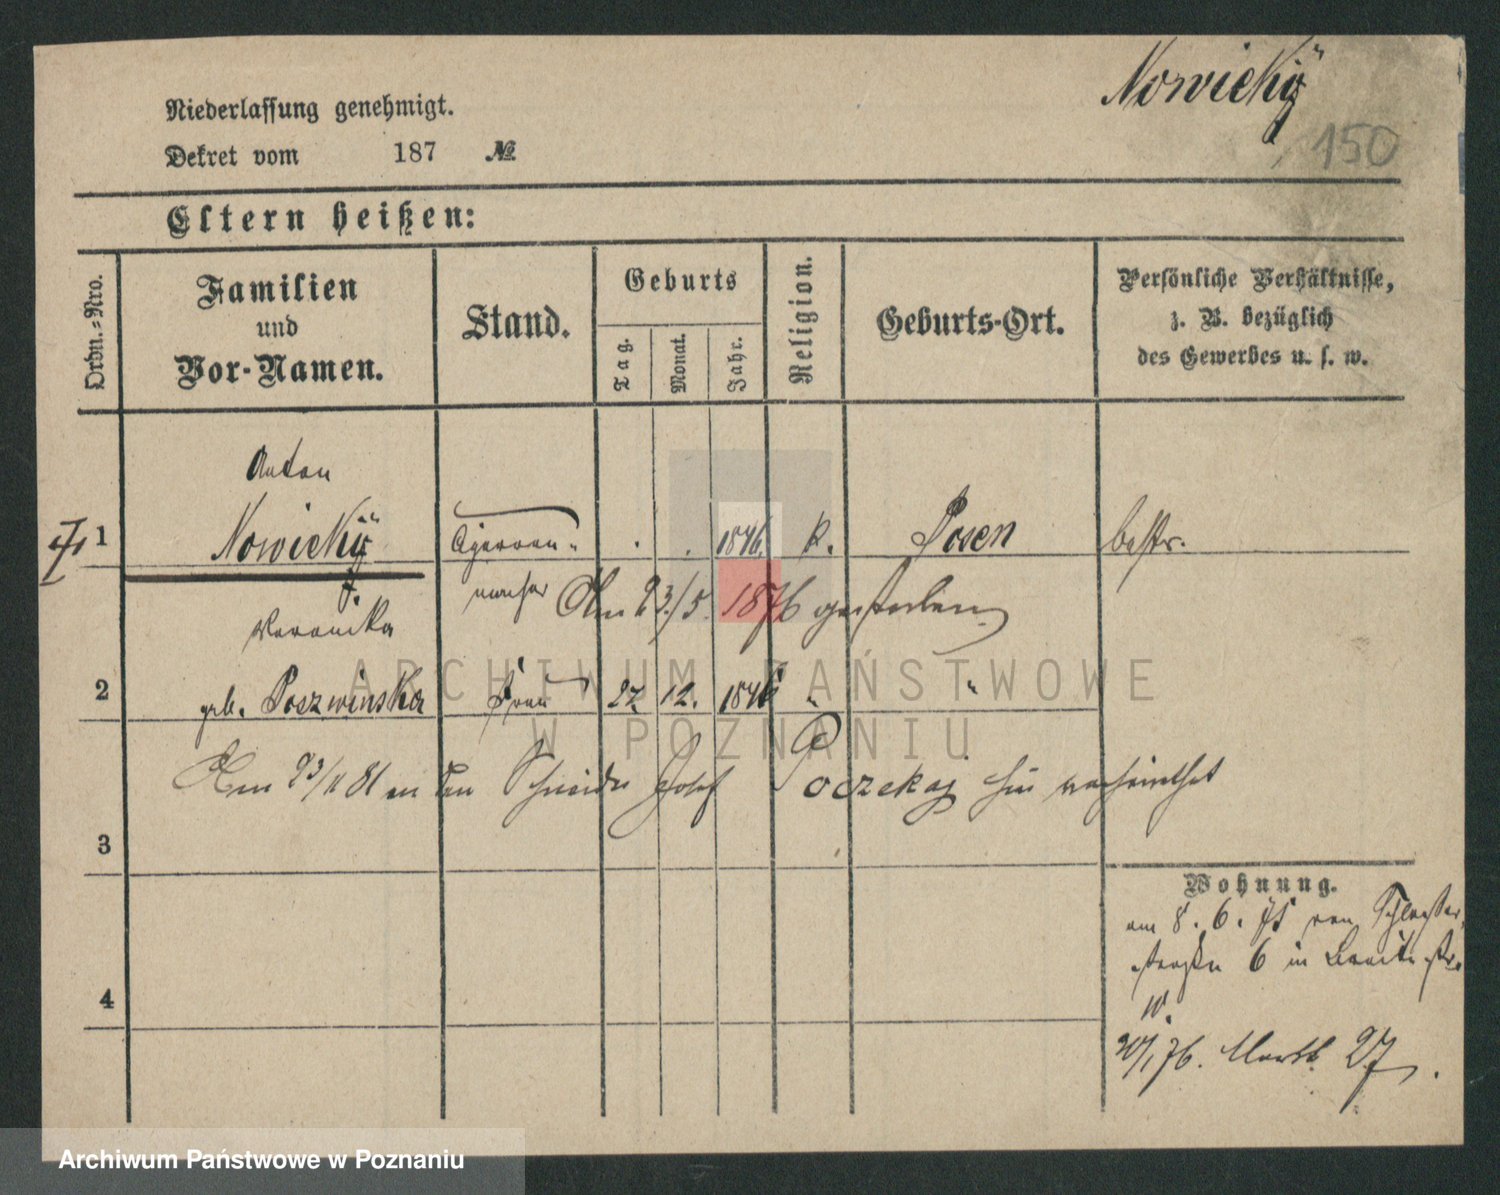 Nowicky
150
Niederlassung genehmigt.
Dekret vom 187 №
Eltern heißen:
Ordn.-Nro.
Familien
und
Vor-Namen.
Stand.
Geburts
Tag.
Monat.
Jahr.
Religion.
Geburts-Ort.
Persönliche Verhältnisse,
z. B. bezüglich
des Gewerbes u. s. w.
Anton
1 Nowicky Cigarren- 1846 k. Posen bestr.
macher
Am 23/5. 1876 gestorben
Veronika
2 geb. Poszwinska Frau 27. 12. 1846 " "
Am 23/11 81 an den Schneider Josef Poczekaj hier verheirathet
3
4
Wohnung.
am 8. 6. 75 von Schlosser
straße 6 in Breite str.
20/1 76. Markt 27.
ARCHIWUM PAŃSTWOWE
W POZNANIU
Archiwum Państwowe w Poznaniu